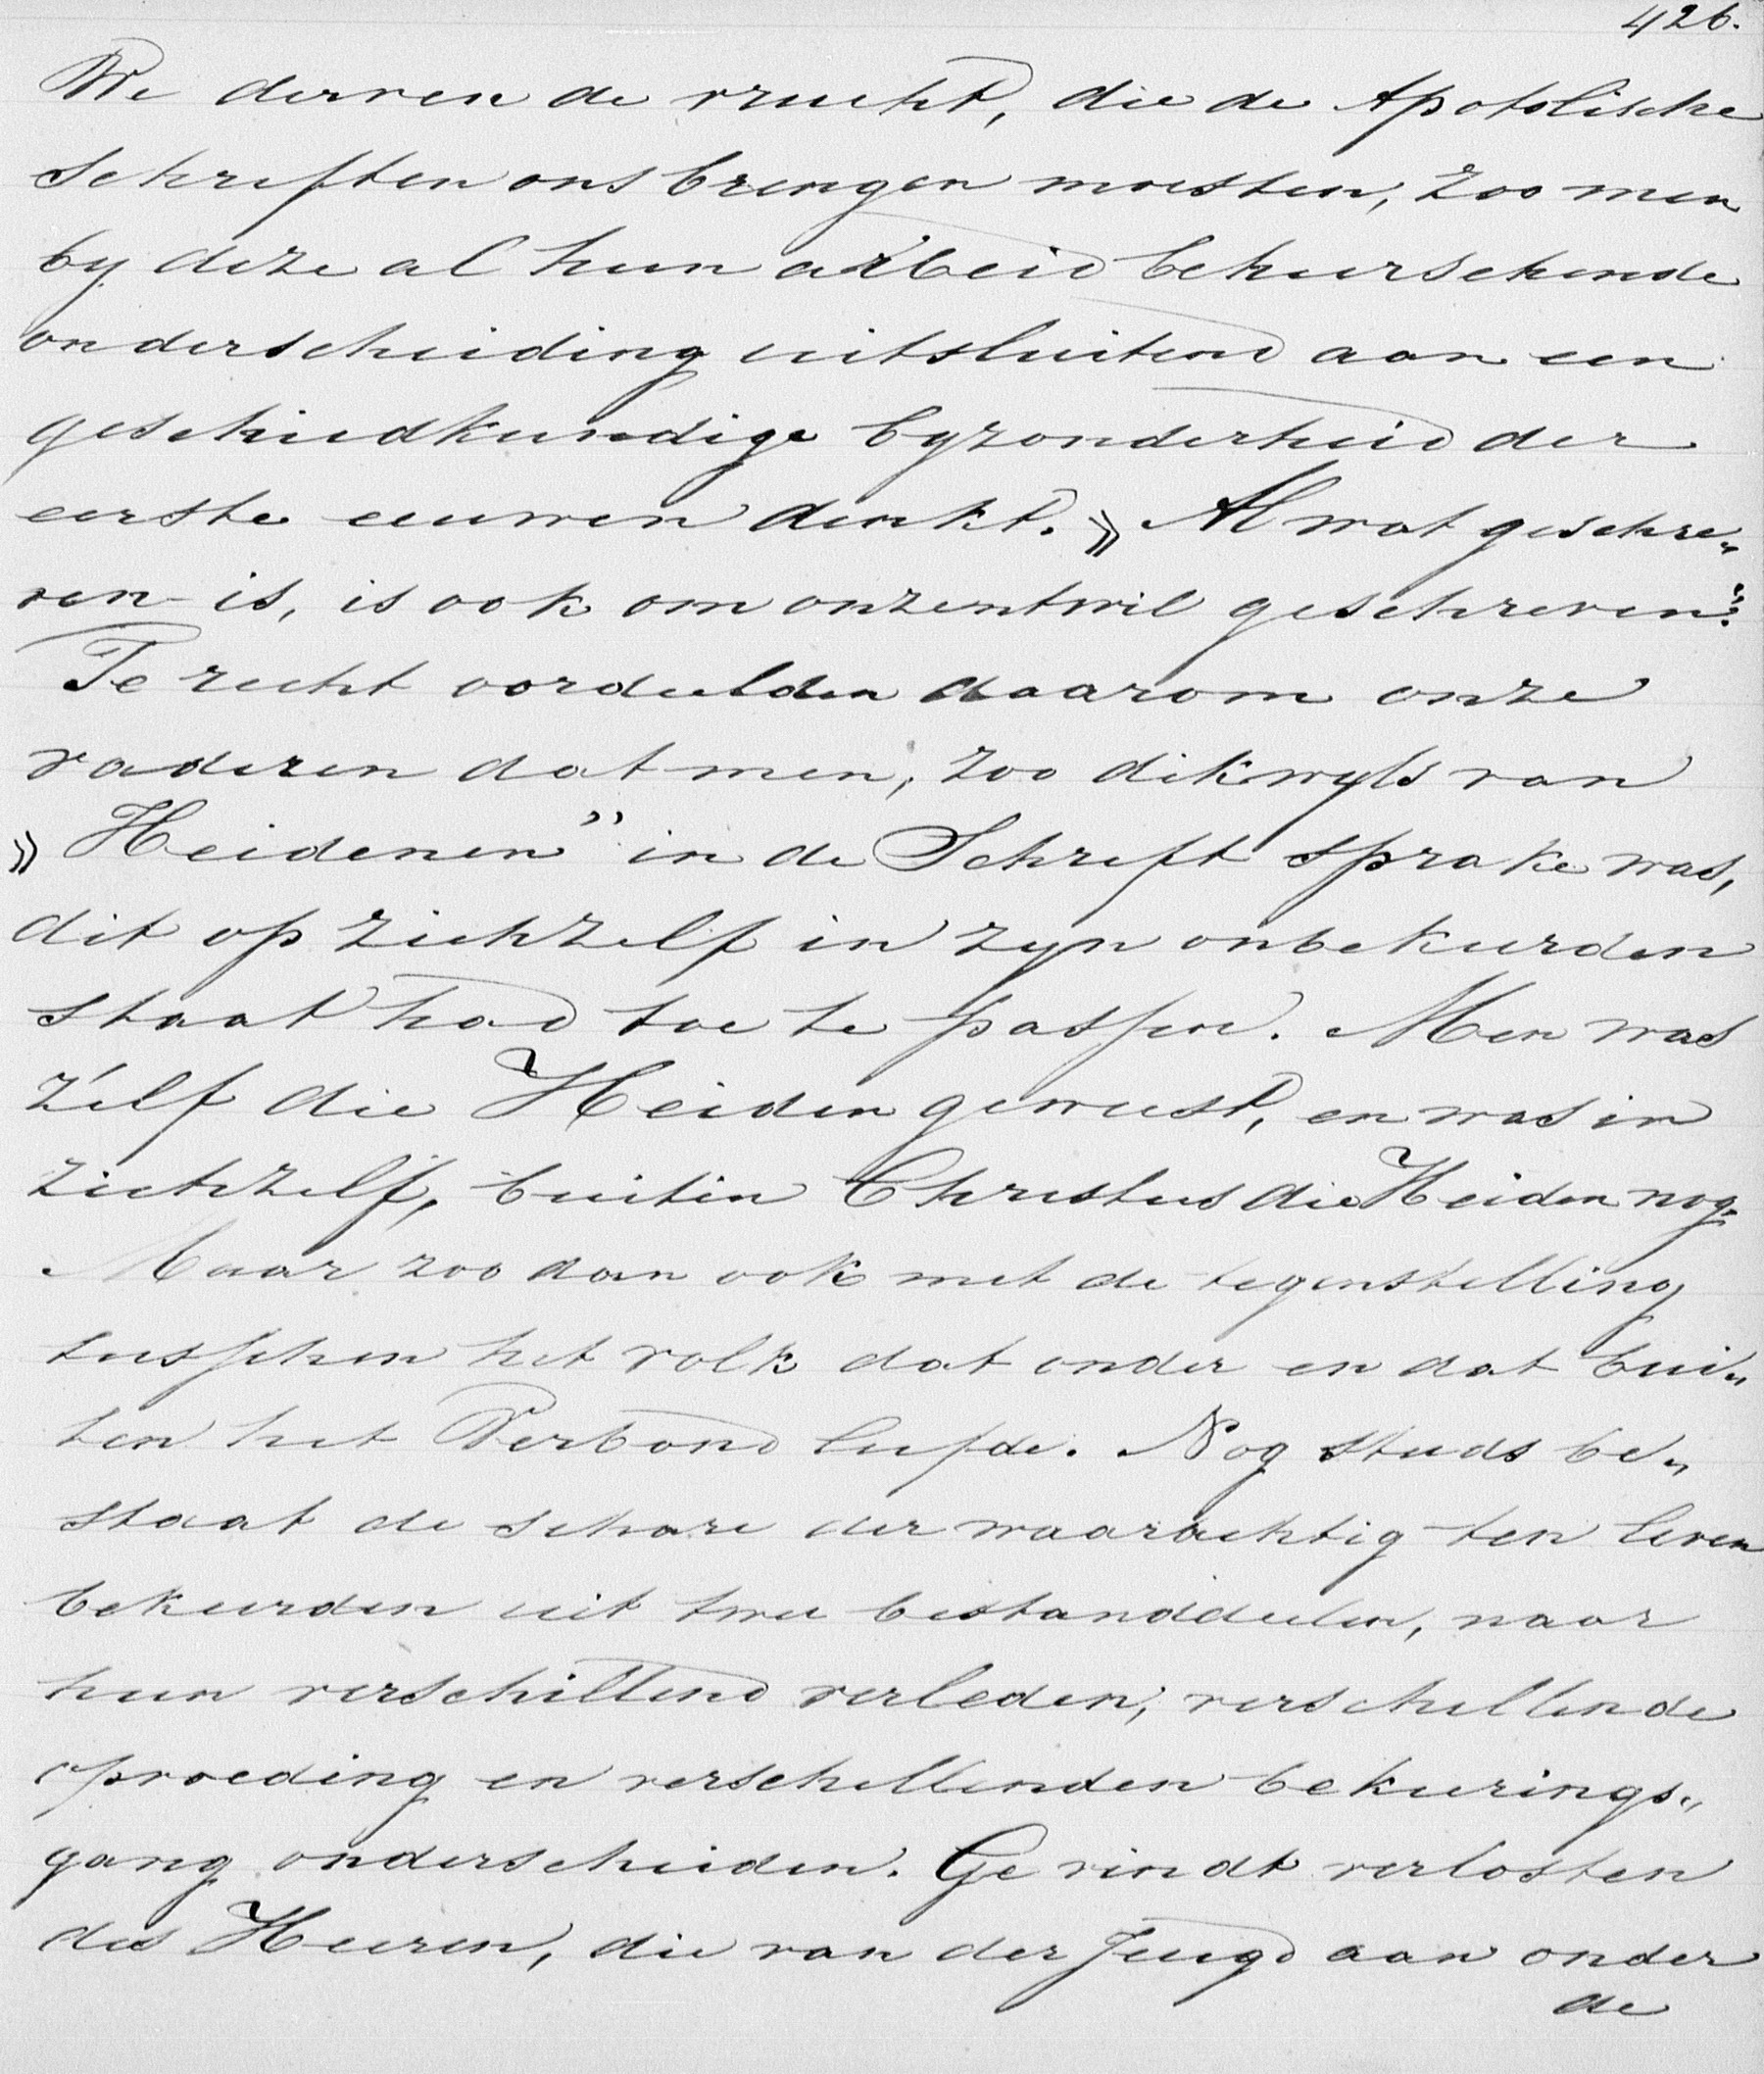 426.
We derven de vrucht, die de Apotslische
schriften ons brengen moesten, zoo men
by deze al hun arbeid beheerschende
onderscheiding uitsluitend aan een
geschiedkundige byzonderheid der
eerste eeuwen denkt. „Al wat geschre„
ven is, is ook om onzentwil geschreven".
Te recht oordeelden daarom onze
vaderen dat men, zoo dikwyls van
„Heidenen" in de Schrift sprake was,
dit op zichzelf in zyn onbekeerden
staat had toe te passen. Men was
zélf die Heiden geweest, en was in
zichzelf, buiten Christus die Heiden nog.
Maar zoo dan ook met de tegenstelling
tusschen het volk dat onder en dat bui„
ten het Verbond leefde. Nog steeds be„
staat de schare der waarachtig ten leven
bekeerden uit twee bestanddeelen, naar
hun verschillend verleden, verschillende
opvoeding en verschillenden bekeerings„
gang onderscheiden. Ge vindt verlosten
des Heeren, die van der jeugd aan onder
de